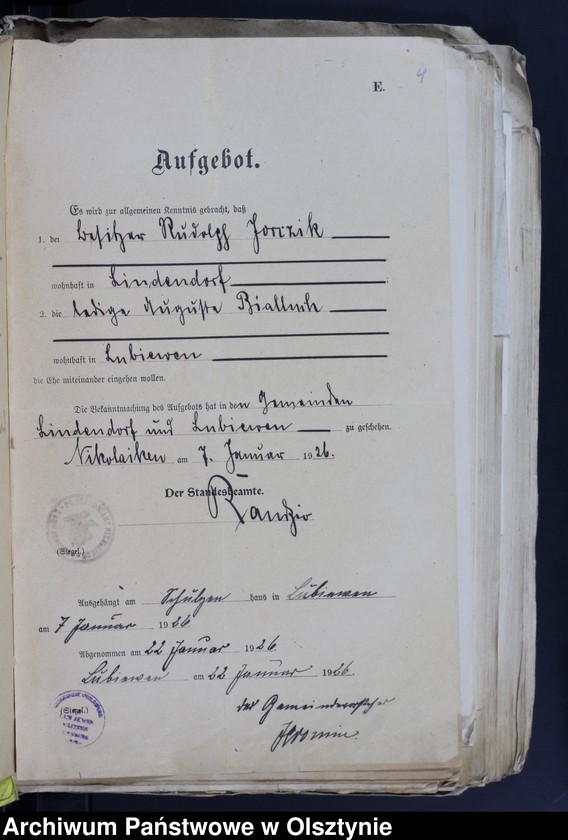 4
E.
Aufgebot.
Es wird zur allgemeinen Kenntnis gebracht, daß
1. der Besitzer Rudolph Jorczik
wohnhaft in Lindendorf
2. die ledige Auguste
wohnhaft in Lubiewen
die Ehe miteinander eingehen wollen.
Die Bekanntmachung des Aufgebots hat in den Gemeinden
Lindendorf und Lubiewen zu geschehen.
Nikolaiken am 7. Januar 1926.
Der Standesbeamte.
Randzio
(Siegel.)
Ausgehängt am Schulzen haus in Lubiewen
am 7 Januar 1926
Abgenommen am 22 Januar 1926
Lubiewen am 22 Januar 1926.
(Siegel.)
der Gemeindevorsteher
Archiwum Państwowe w Olsztynie